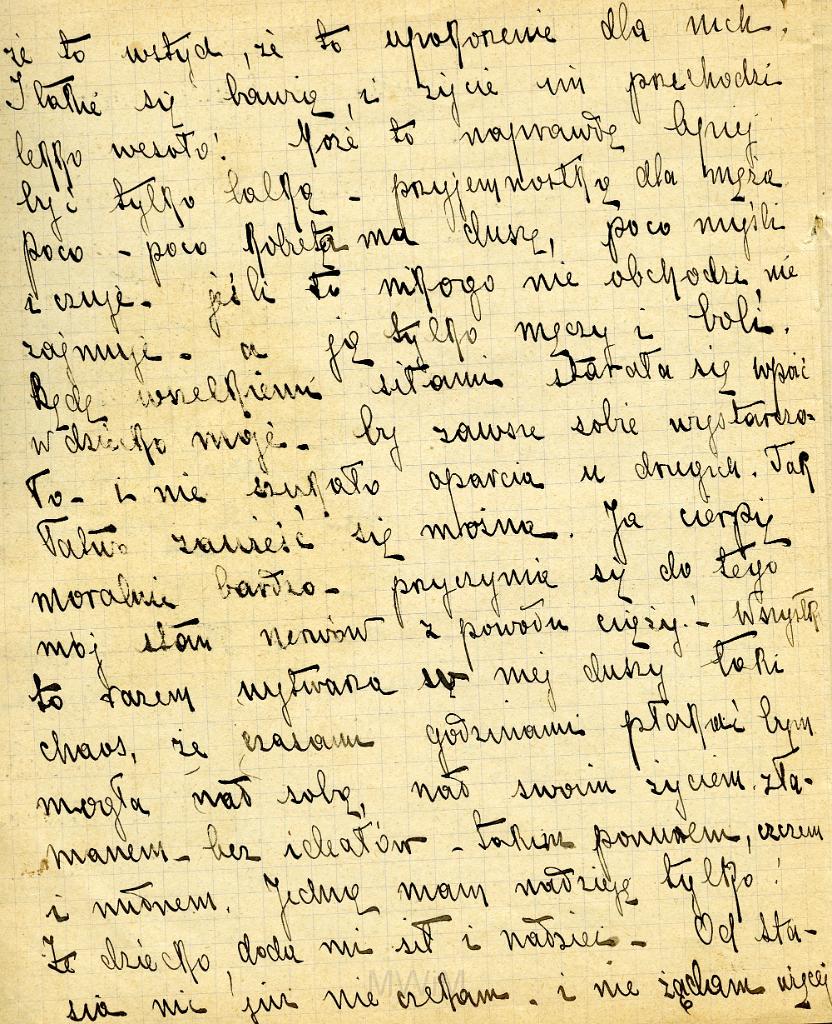 że to wstyd, że to upokorzenie dla nich.
I takie się bawią, i życie im przechodzi
lekko wesoło! Może to naprawdę lepiej
być tylko lalką - przyjemnostką dla męża
poco - poco kobieta ma duszę, poco myśli
i czuje - jeśli to nikogo nie obchodzi, nie
zajmuje - a ją tylko męczy i boli.
Będę wszelkiemi siłami starała się wpoić
w dziecko moje - by zawsze sobie wystarcza-
ło - i nie szukało oparcia u drugich. Tak
łatwo zawieść się można. Ja cierpię
moralnie bardzo - przyczynia się do tego
mój stan nerwów z powodu ciąży! - Wszystko
to razem wytwarza w mej duszy taki
chaos, że czasami godzinami płakać bym
mogła nad sobą, nad swoim życiem zła-
manem - bez ideałów - takim ponurem, czczem
i nudnem. Jedną mam nadzieję tylko!
Że dziecko doda mi sił i nadziei - Od Sta-
sia nic już nie czekam. i nie żądam więcej
MWM